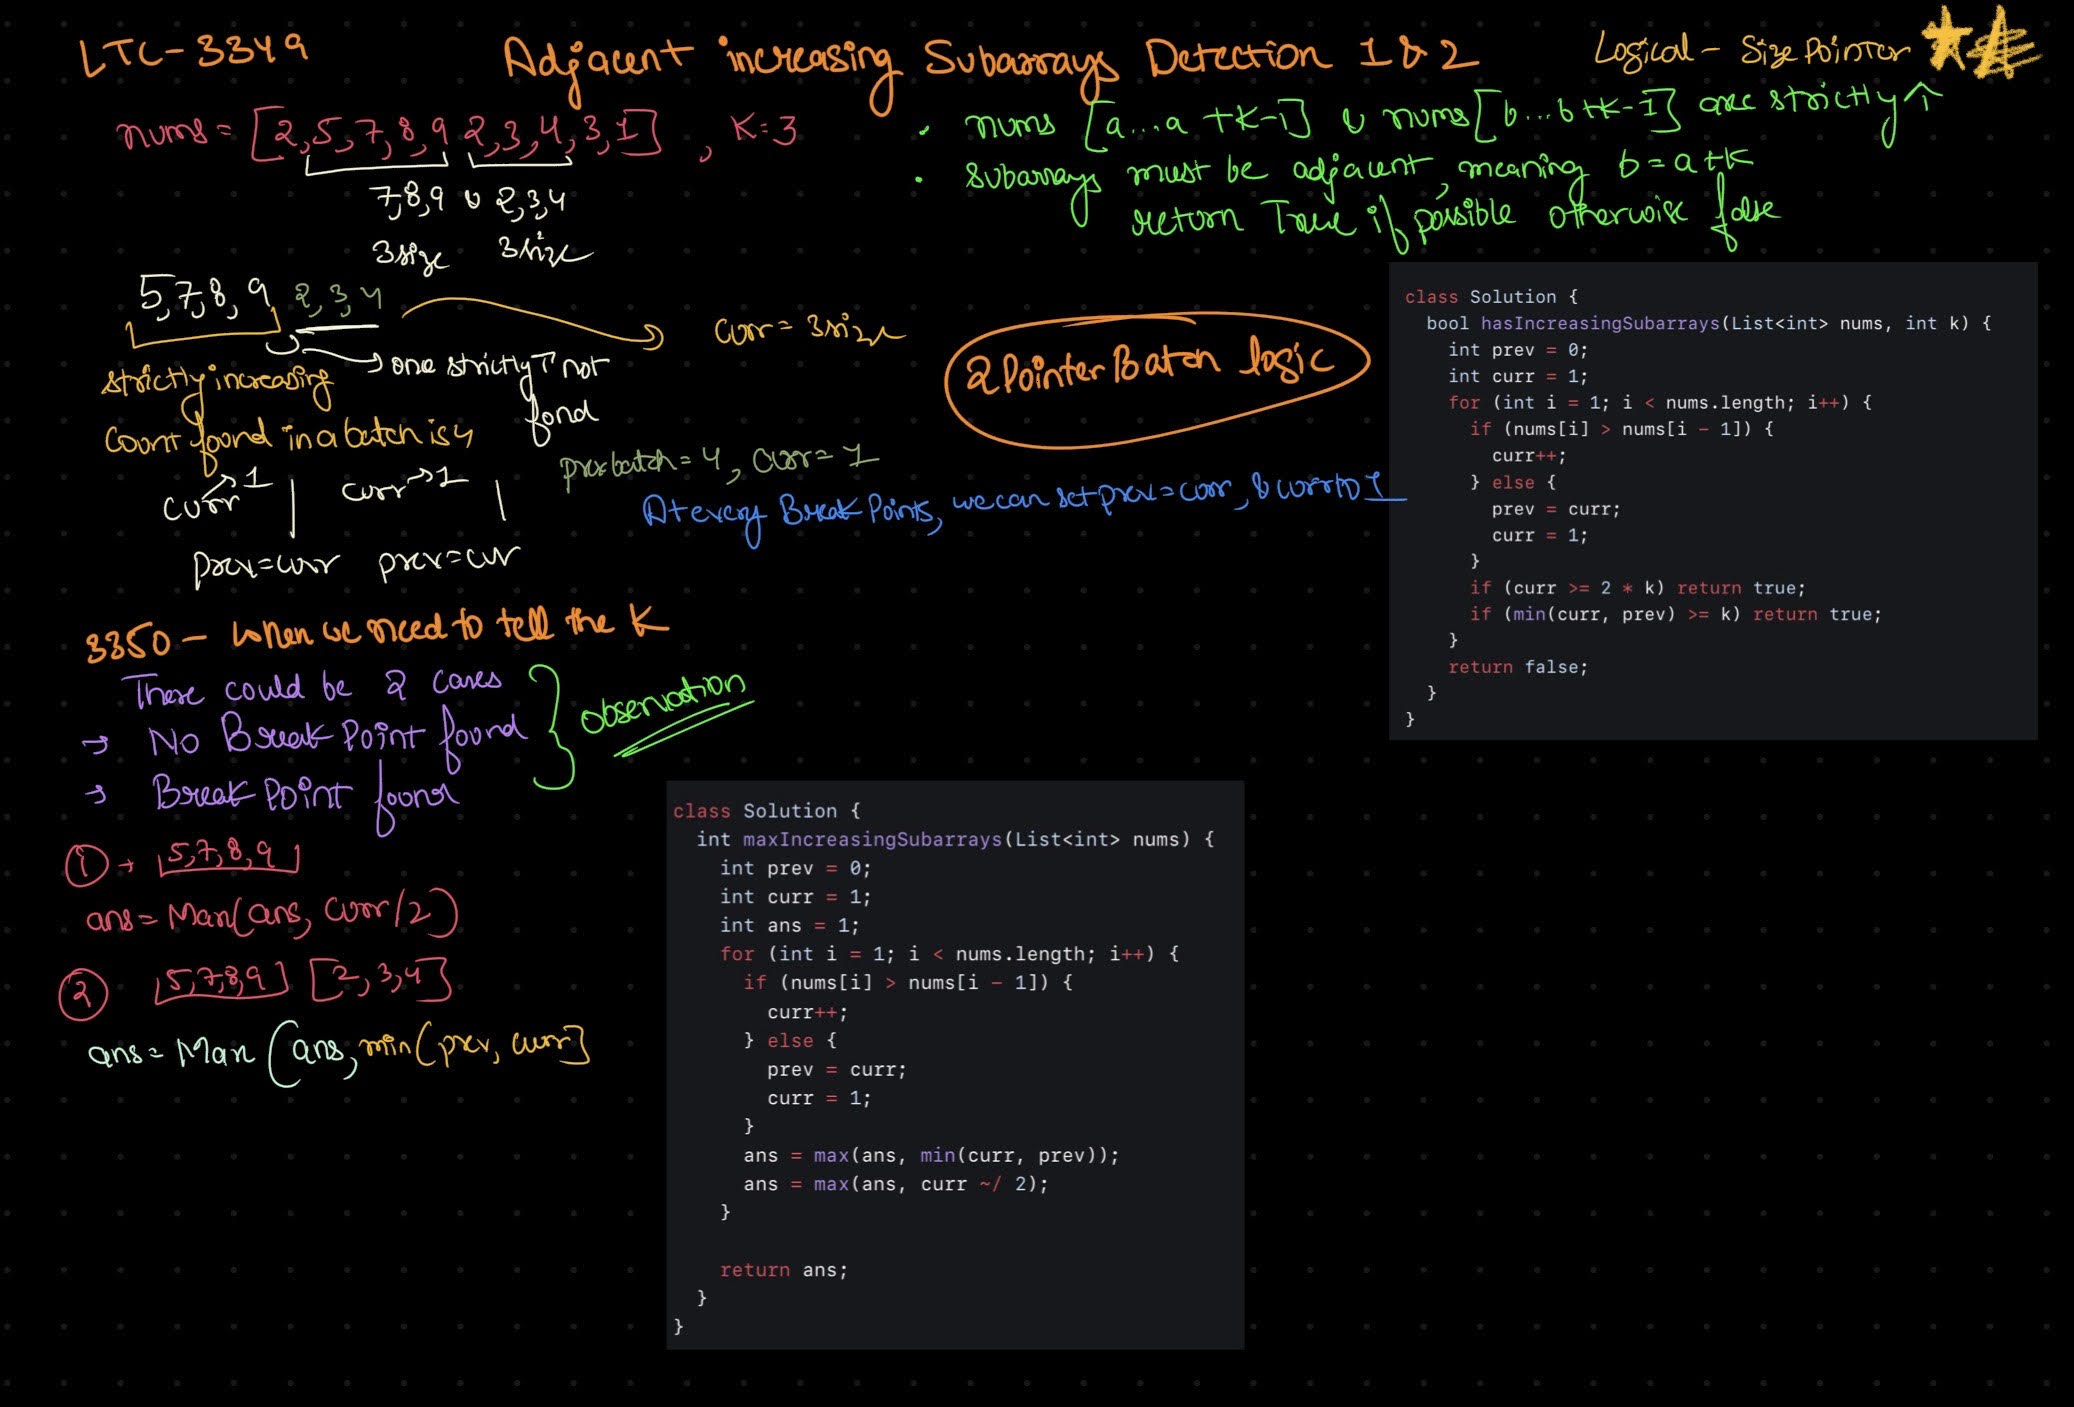 LTC-3349
Adjacent increasing Subarrays Detection 1 & 2
Logical - Size Pointer
nums = [2,5,7,8,9 2,3,4,3,1] , K=3
7,8,9 & 2,3,4
3size 3size
• nums [a...a+k-1] & nums[b...b+k-1] are strictly ↑
• Subarrays must be adjacent, meaning b=a+k
return True if possible otherwise false
5,7,8,9 2,3,4
curr = 3size
strictly increasing
Count found in a batch is 4
→ one strictly ↑ not
fond
2 Pointer Batch logic
prev batch = 4, curr = 1
curr→1 | curr→1 |
prev=curr prev=cur
At every Break Points, we can set prev=curr, & curr to 1
class Solution {
bool hasIncreasingSubarrays(List<int> nums, int k) {
int prev = 0;
int curr = 1;
for (int i = 1; i < nums.length; i++) {
if (nums[i] > nums[i - 1]) {
curr++;
} else {
prev = curr;
curr = 1;
}
if (curr >= 2 * k) return true;
if (min(curr, prev) >= k) return true;
}
return false;
}
}
3350 - When we need to tell the K
There could be 2 cases
→ No Break Point found
→ Break Point found
observation
① → 5,7,8,9
ans = Max(ans, curr/2)
② [5,7,8,9] [2,3,4]
ans = Max(ans, min(prev, curr]
class Solution {
int maxIncreasingSubarrays(List<int> nums) {
int prev = 0;
int curr = 1;
int ans = 1;
for (int i = 1; i < nums.length; i++) {
if (nums[i] > nums[i - 1]) {
curr++;
} else {
prev = curr;
curr = 1;
}
ans = max(ans, min(curr, prev));
ans = max(ans, curr ~/ 2);
}
return ans;
}
}